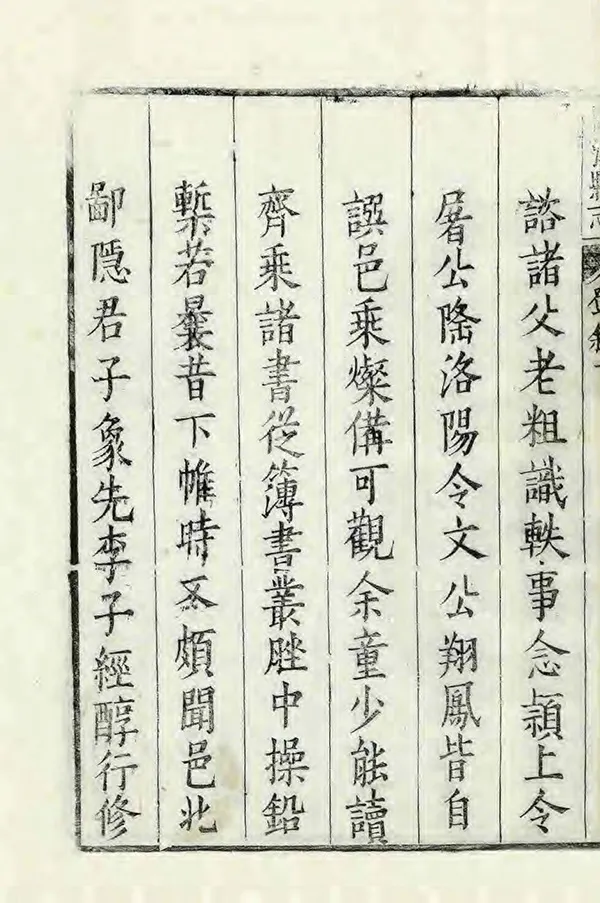 諮諸父老粗識軼事念頴上令
屠公隆洛陽令文公翔鳳皆自
譔邑乘燦備可觀余童少能讀
齊乘諸書從簿書叢脞中操鉛
槧若曩昔下帷時又頗聞邑北
鄙隱君子象先李子經醇行修